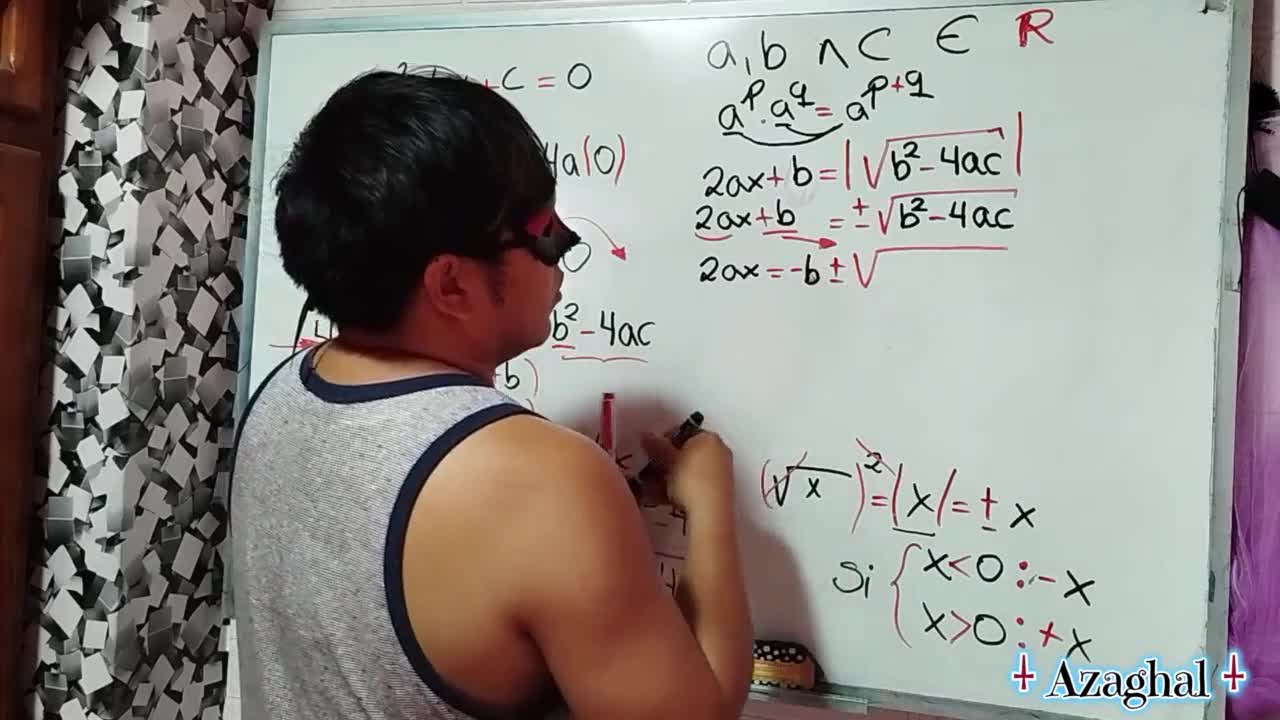 + C = 0
4a(0)
0
b² - 4ac
b)
a, b ∧ C ∈ R
a^p . a^q = a^(p+q)
2ax + b = |√(b² - 4ac)|
2ax + b = ± √(b² - 4ac)
2ax = -b ± √
(√x)² = |x| = ± x
Si { x < 0 : - x
x > 0 : + x
Azaghal